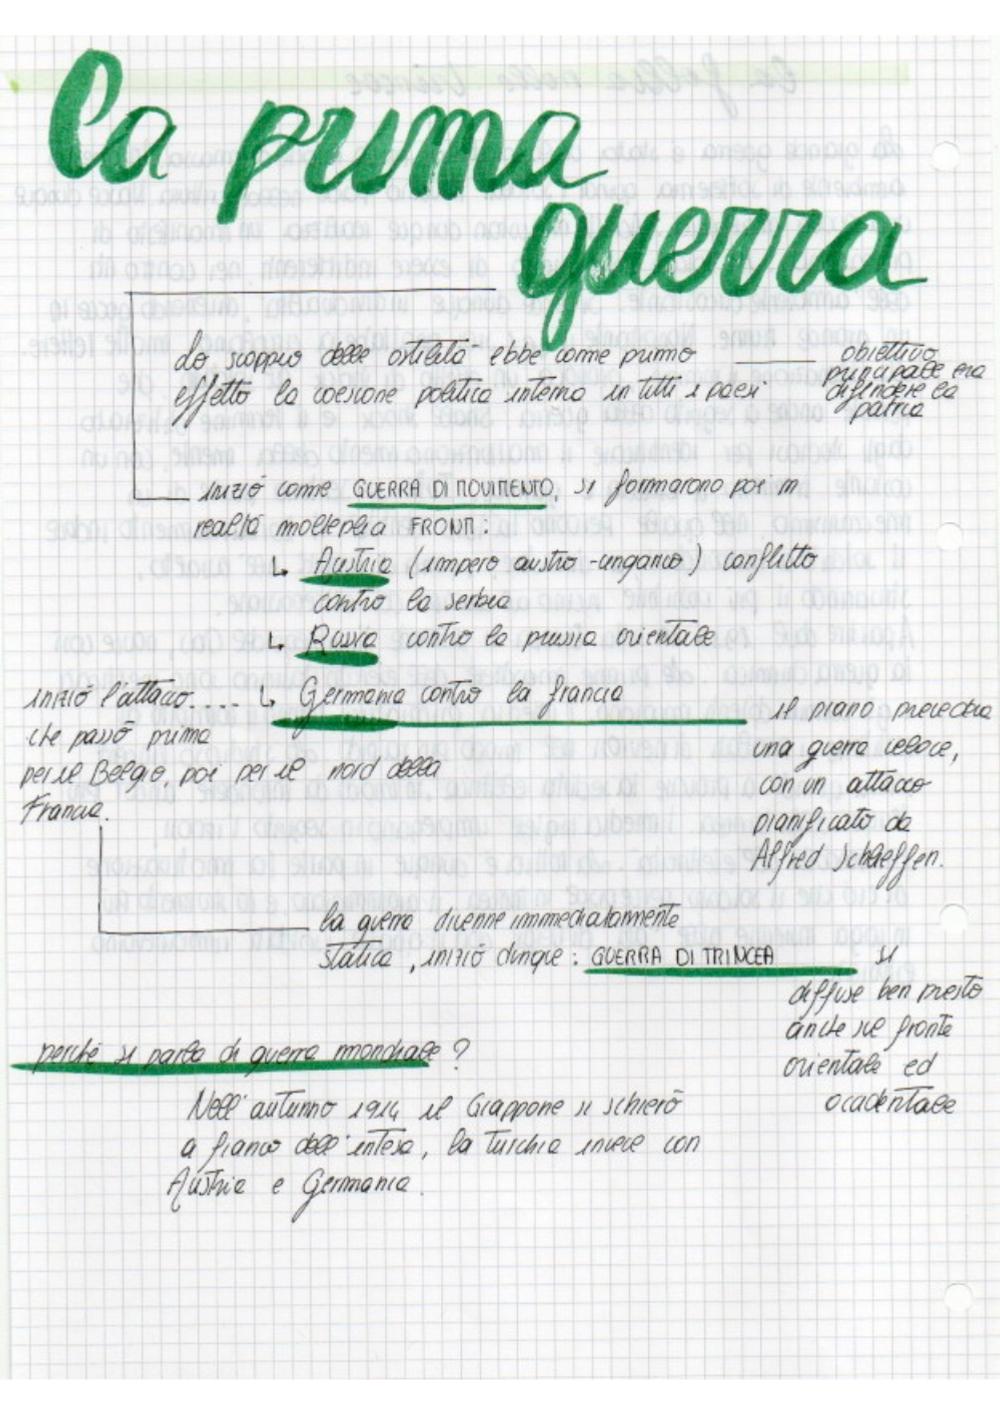 la prima
guerra
Lo scoppio delle ostilità ebbe come primo
effetto la coesione politica interna in tutti i paesi
obiettivo
principale era
difendere la
patria
iniziò come GUERRA DI MOVIMENTO, si formarono poi in
realtà molteplici FRONTI:
↳ Austria (impero austro-ungarico) conflitto
contro la serbia
↳ Russia contro la prussia orientale
↳ Germania contro la francia
iniziò l'attacco....
che passò prima
per il Belgio, poi per il nord della
Francia.
il piano prevedeva
una guerra veloce,
con un attacco
pianificato da
Alfred Schaeffen.
la guerra divenne immediatamente
statica, iniziò dunque: GUERRA DI TRINCEA
si
diffuse ben presto
anche sul fronte
orientale ed
occidentale
perché si parla di guerra mondiale?
Nell'autunno 1914 il Giappone si schierò
a fianco dell'intesa, la Turchia invece con
Austria e Germania.